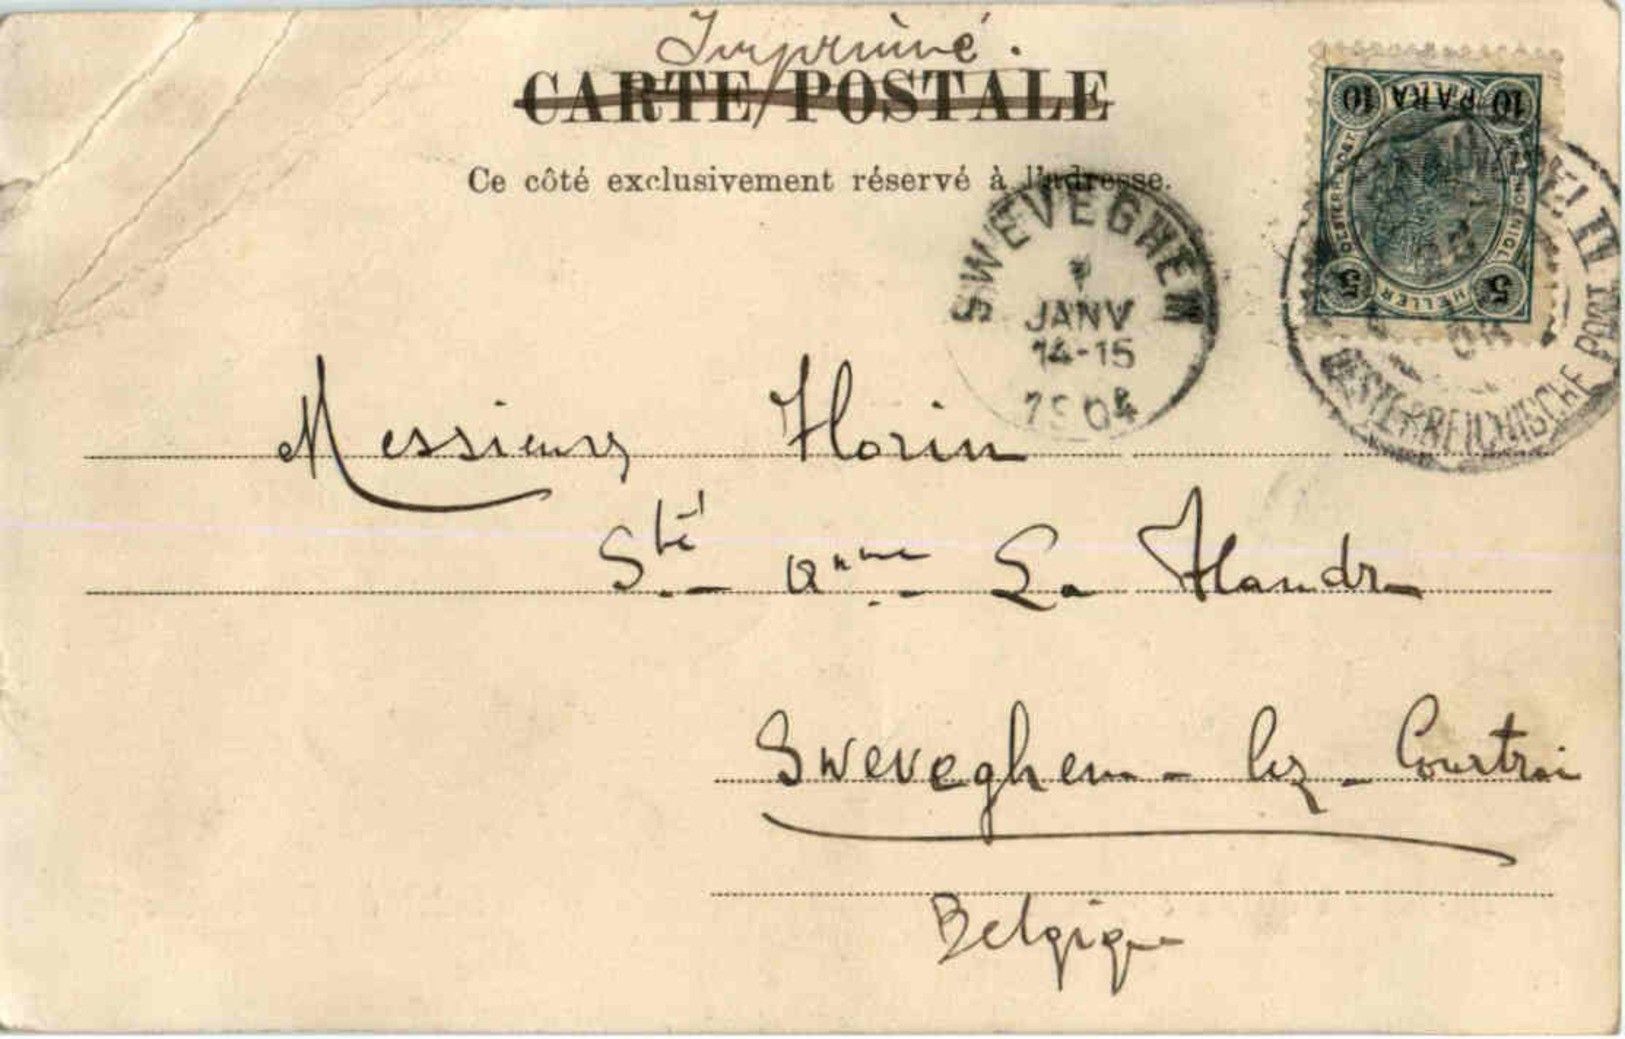 Imprimé.
CARTE POSTALE
Ce côté exclusivement réservé à l'adresse.
10 PARA 10
5 HELLER 5
SWEVEGHEM
JANV
14-15
1904
OESTERREICHISCHE POST
II
04
Messieurs Florin
Sté anme La Flandre
Sweveghem-lez-Courtrai
Belgique